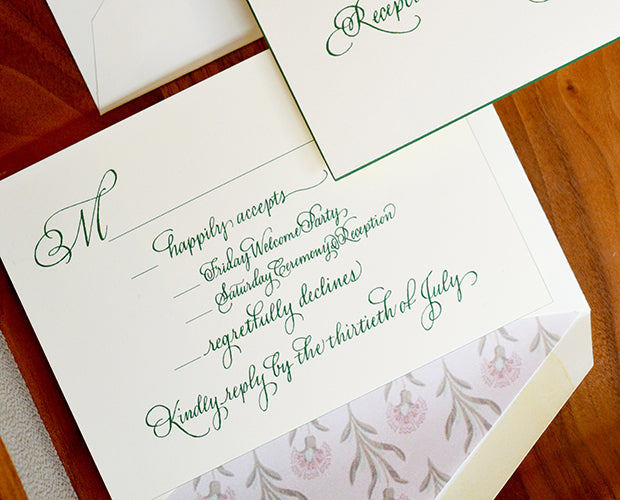 Reception
M
happily accepts
Friday Welcome Party
Saturday Ceremony & Reception
regretfully declines
Kindly reply by the thirtieth of July